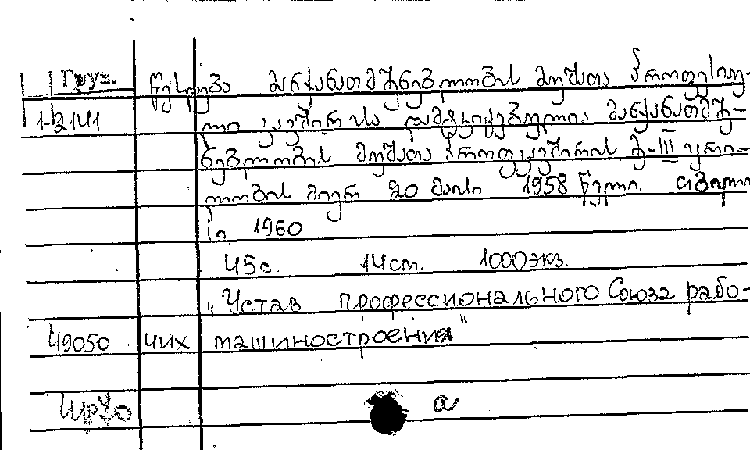 Груз. წესდება მანქანათმშენებლობის მუშათა პროფესიუ-
1-2141 ლი კავშირისა დამტკიცებულია მანქანათმშე-
ნებლობის მუშათა პროფკავშირის მ-III ყრი-
ლობის მიერ 20 მაისი 1958 წელი თბილი
სი 1960
45с. 14см. 1000экз.
"Устав профессионального Союза рабо-
49050 чих машиностроения"
а